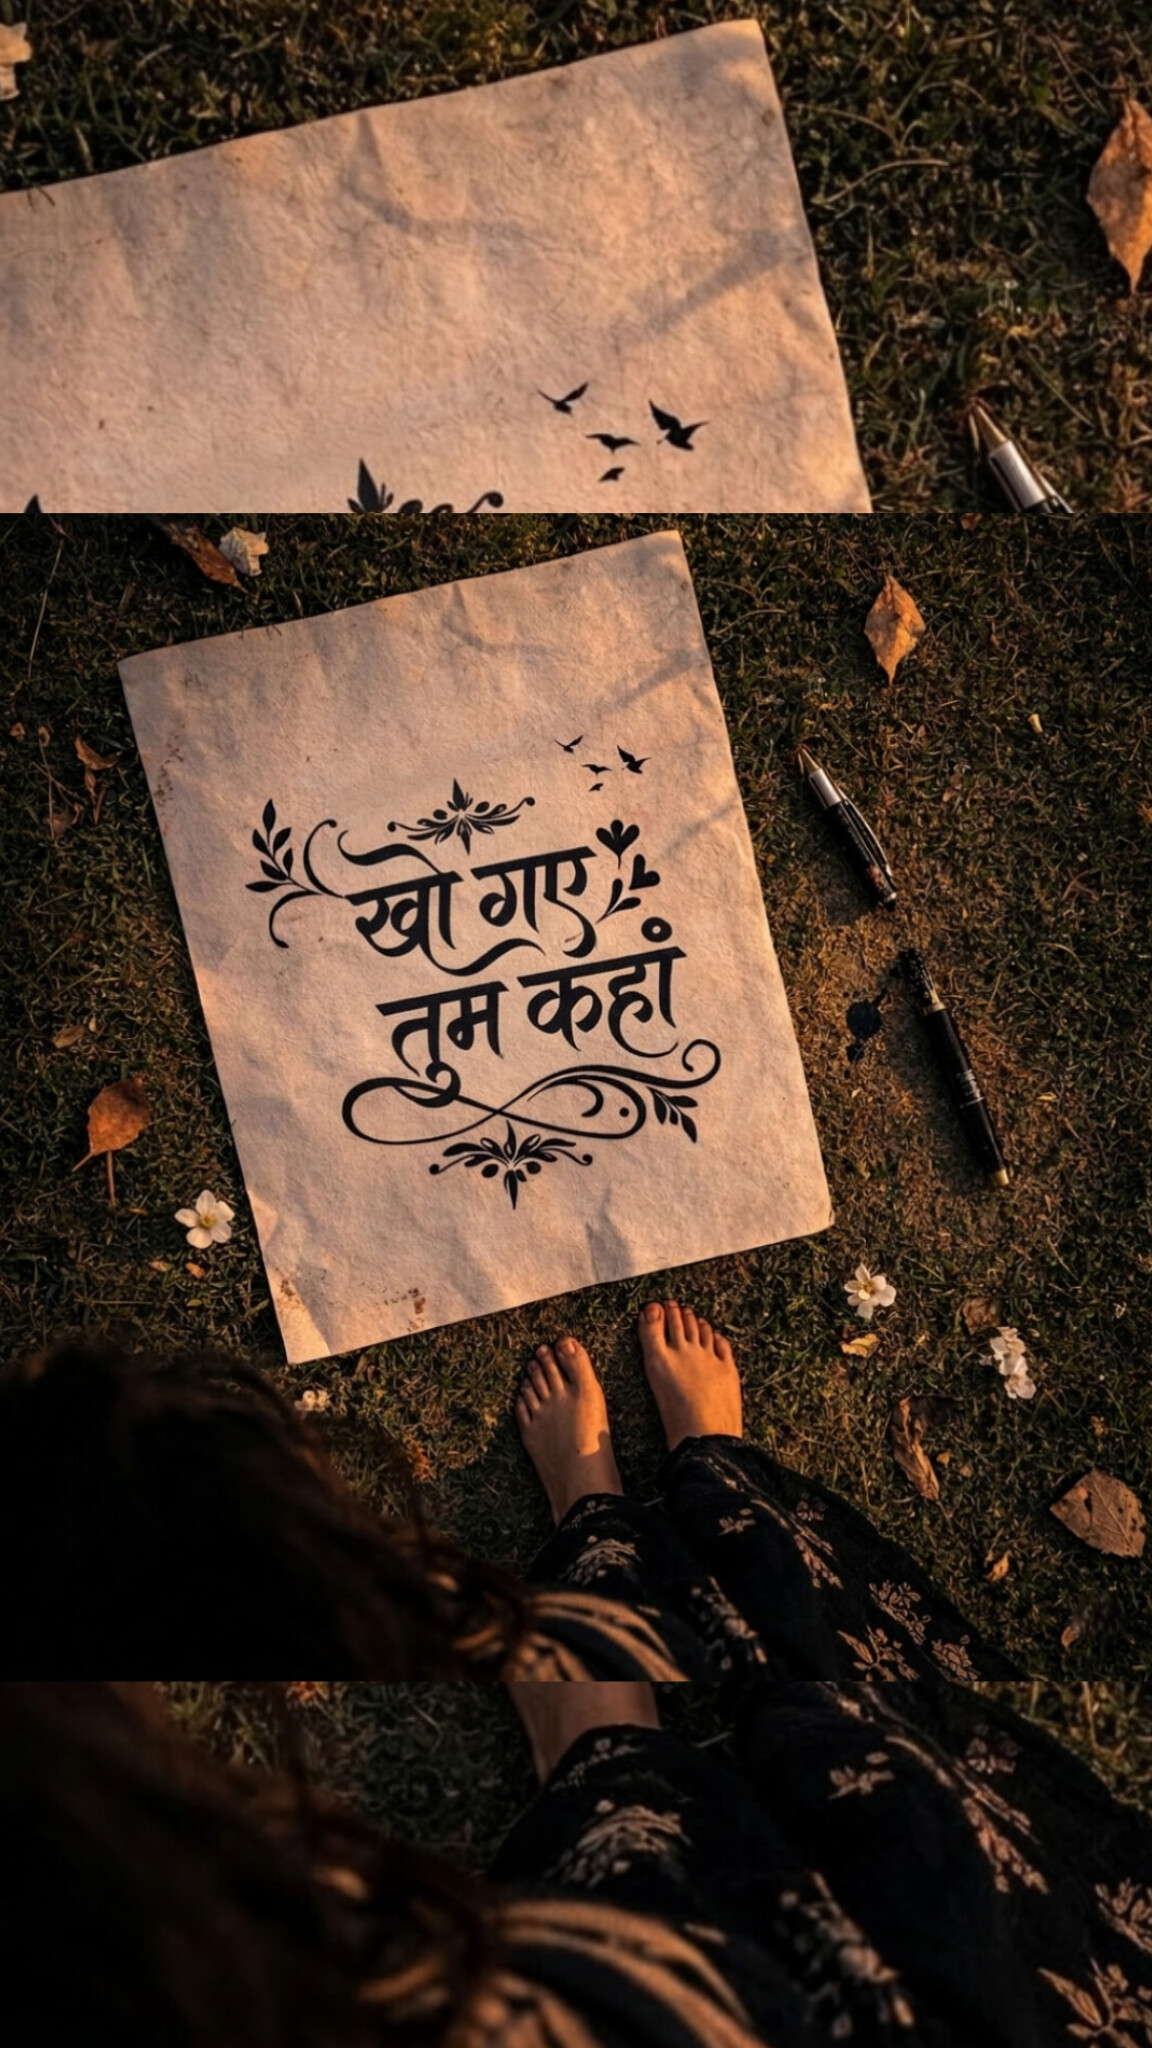 खो गए
तुम कहां